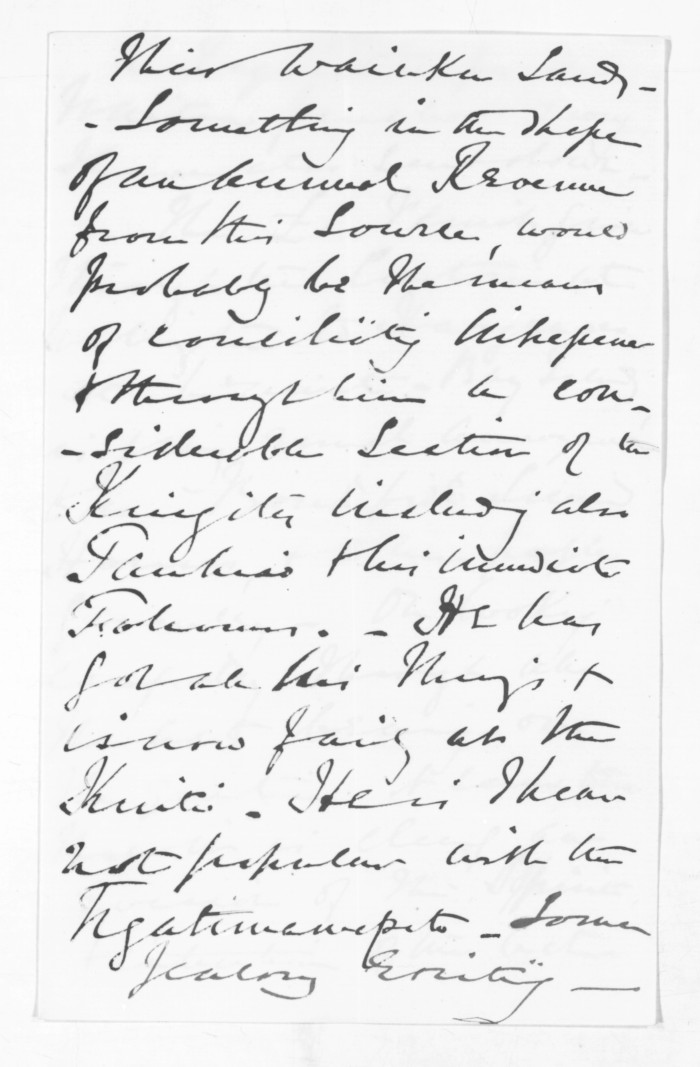 their Waikato Lands -
- Something in the shape
of an annual Revenue
from this Source, would
probably be the means
of conciliating
& through him a con-
-siderable Section of the
Kingites including also
Tawhiao & his immediate
. - He has
got all his things &
is now fairly at the
Kuiti - He is I hear
not popular with the
Ngatimaniapoto - Some
Jealousy Existing -